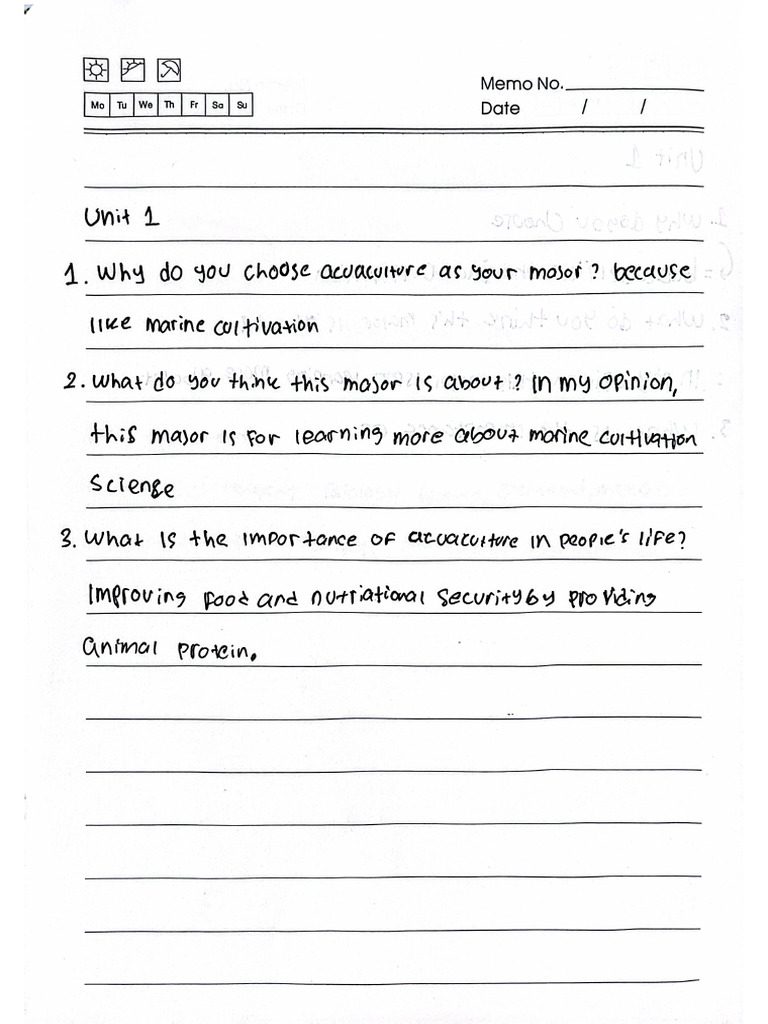 Memo No.
Mo Tu We Th Fr Sa Su
Date / /
Unit 1
1. Why do you choose acuaculture as your major? because
like marine cultivation
2. What do you think this major is about? In my opinion,
this major is for learning more about marine cultivation
Science
3. What is the importance of acuaculture in people's life?
Improving food and nutriational security by providing
animal protein.